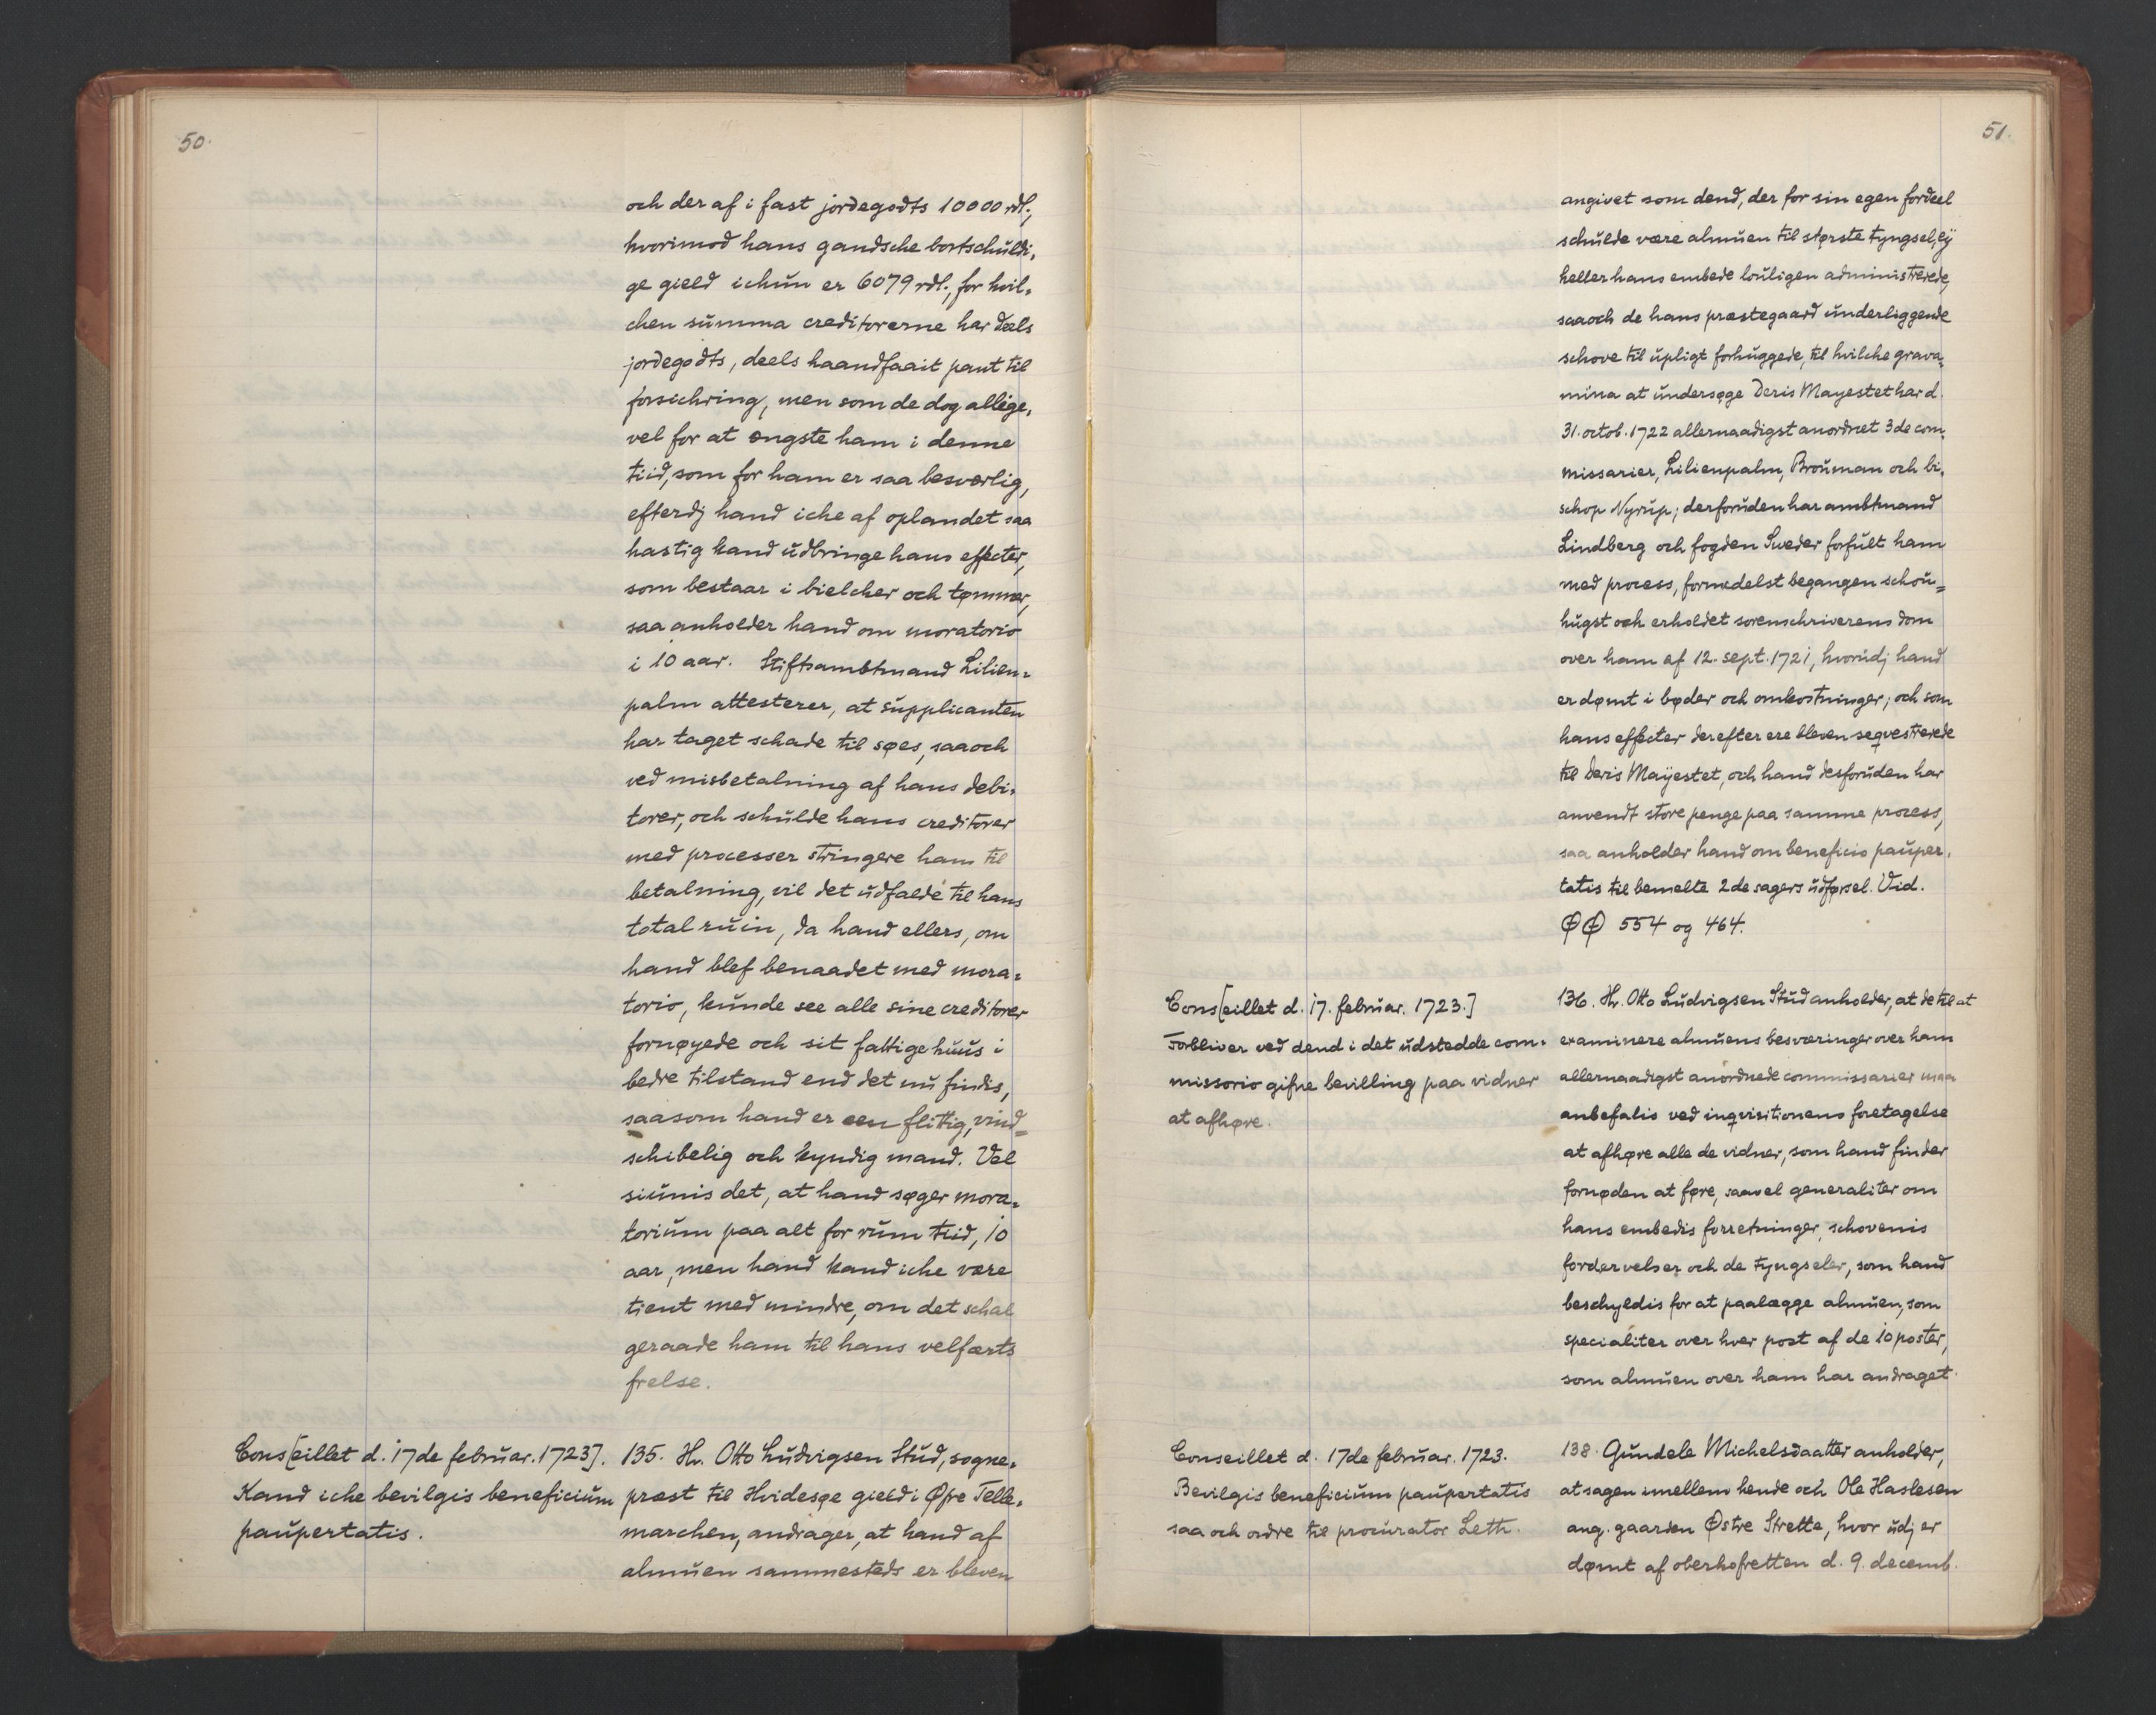 50.
och der af i fast jordegodts 10000 rdl.,
hvorimod hans gandsche bortschŭldi,
ge gield ichŭn er 6079 rdl., for hvil,
chen sŭmma creditorerne har deels
jordegodts, deels haandfaait pant til
forsichring, men som de dog allige,
vel for at ængste ham i denne
tiid, som for ham er saa besværlig,
efterdj hand iche af oplandet saa
hastig kand ŭdbringe hans effecter,
som bestaar i bielcher och tømmer,
saa anholder hand om moratorio
i 10 aar. Stiftsambtmand Lilien=
palm attesterer, at sŭpplicanten
har taget schade til søes, saaoch
ved misbetalning af hans debi,
torer, och schŭlde hans creditorer
med processer stringere ham til
betalning, vil det ŭdfalde til hans
total rŭin, da hand ellers, om
hand blef benaadet med mora=
torio, kŭnde see alle sine creditorer
fornøyede och sit fattige hŭŭs i
bedre tilstand end det nŭ findis,
saasom hand er een flittig, vind=
schibelig och kyndig mand. Vel
siŭnis det, at hand søger mora=
toriŭm paa alt for rŭm tiid, 10
aar, men hand kand iche være
tient med mindre, om det schal
geraade ham til hans velfærts
frelse.
Cons[eillet d. 17de febrŭar. 1723].
Kand iche bevilgis beneficiŭm
paŭpertatis.
135. Hr. Otto Lŭdvigsen Stŭd, sogne=
præst til Hvidesøe gield i Øfre Telle,
marchen, andrager, at hand af
almŭen sammesteds er bleven
51.
angivet som dend, der for sin egen fordeel
schŭlde være almŭen til største tyngsel, ej
heller hans embede loŭligen administrerede,
saaoch de hans præstegaard ŭnderliggende
schove til ŭpligt forhŭggede, til hvilche grava,
mina at ŭndersøge Deris Mayestet har d.
31. octob. 1722 allernaadigst anordnet 3de com,
missarier, Lilienpalm, Broŭman och bi,
schop Nyrŭp; derforŭden har ambtmand
Lindberg och fogden Sweder forfŭlt ham
med process, formedelst begangen schoŭ=
hŭgst och erholdet sorenschriverens dom
over ham af 12. sept. 1721, hvorŭdj hand
er dømt i bøder och omkostninger; och som
hans effecter derefter ere bleven seqvestrerede
til Deris Maÿestet, och hand desforŭden har
anvendt store penge paa samme process,
saa anholder hand om beneficio paŭper,
tatis til bemelte 2de sagers ŭdførsel. Vid.
ΦΦ 554 og 464.
Cons[eillet d. 17. febrŭar. 1723.]
Forbliver ved dend i det ŭdstedde com=
missorio gifne bevilling paa vidner
at afhøre.
136. Hr. Otto Lŭdvigsen Stŭd anholder, at de til at
examinere almŭens besværinger over ham
allernaadigst anordnede commissarier maa
anbefalis ved inqvisitionens foretagelse
at afhøre alle de vidner, som hand finder
fornøden at føre, saavel generaliter om
hans embedis forretninger, schovenis
fordervelser och de tyngseler, som hand
beschyldis for at paalægge almŭen, som
specialiter over hver post af de 10 poster,
som almŭen over ham har andraget.
Conseillet d. 17de febrŭar. 1723.
Bevilgis beneficiŭm paŭpertatis
saa och ordre til procŭrator Leth.
138. Gŭndele Michelsdaatter anholder,
at sagen imellem hende och Ole Haslesen
ang. gaarden Østre Strette, hvor ŭdj er
dømt af oberhofretten d. 9. decemb.